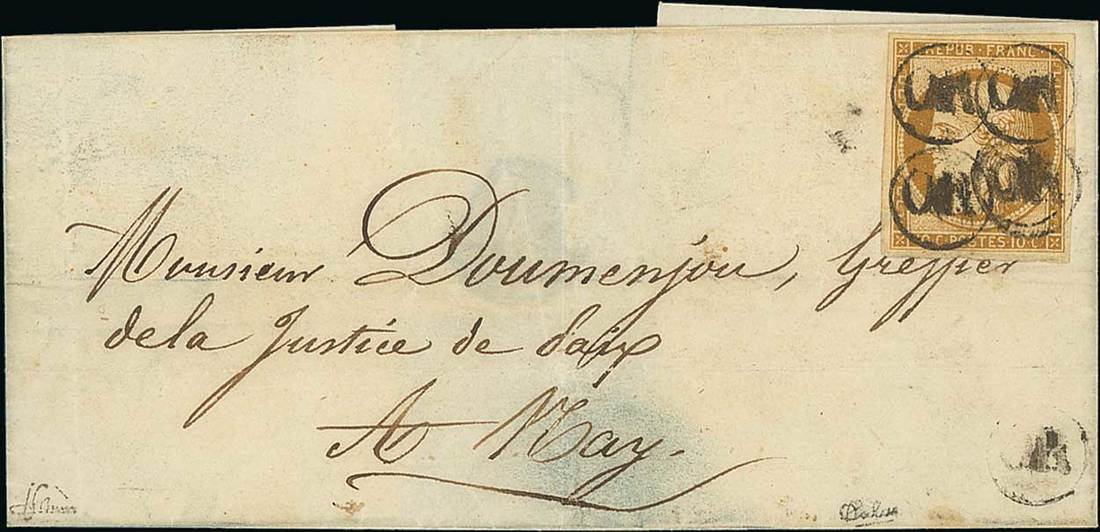 REPUB · FRANC
10 C POSTES 10 C
Monsieur Doumenjou, Greffier
de la Justice de Paix
A Nay.